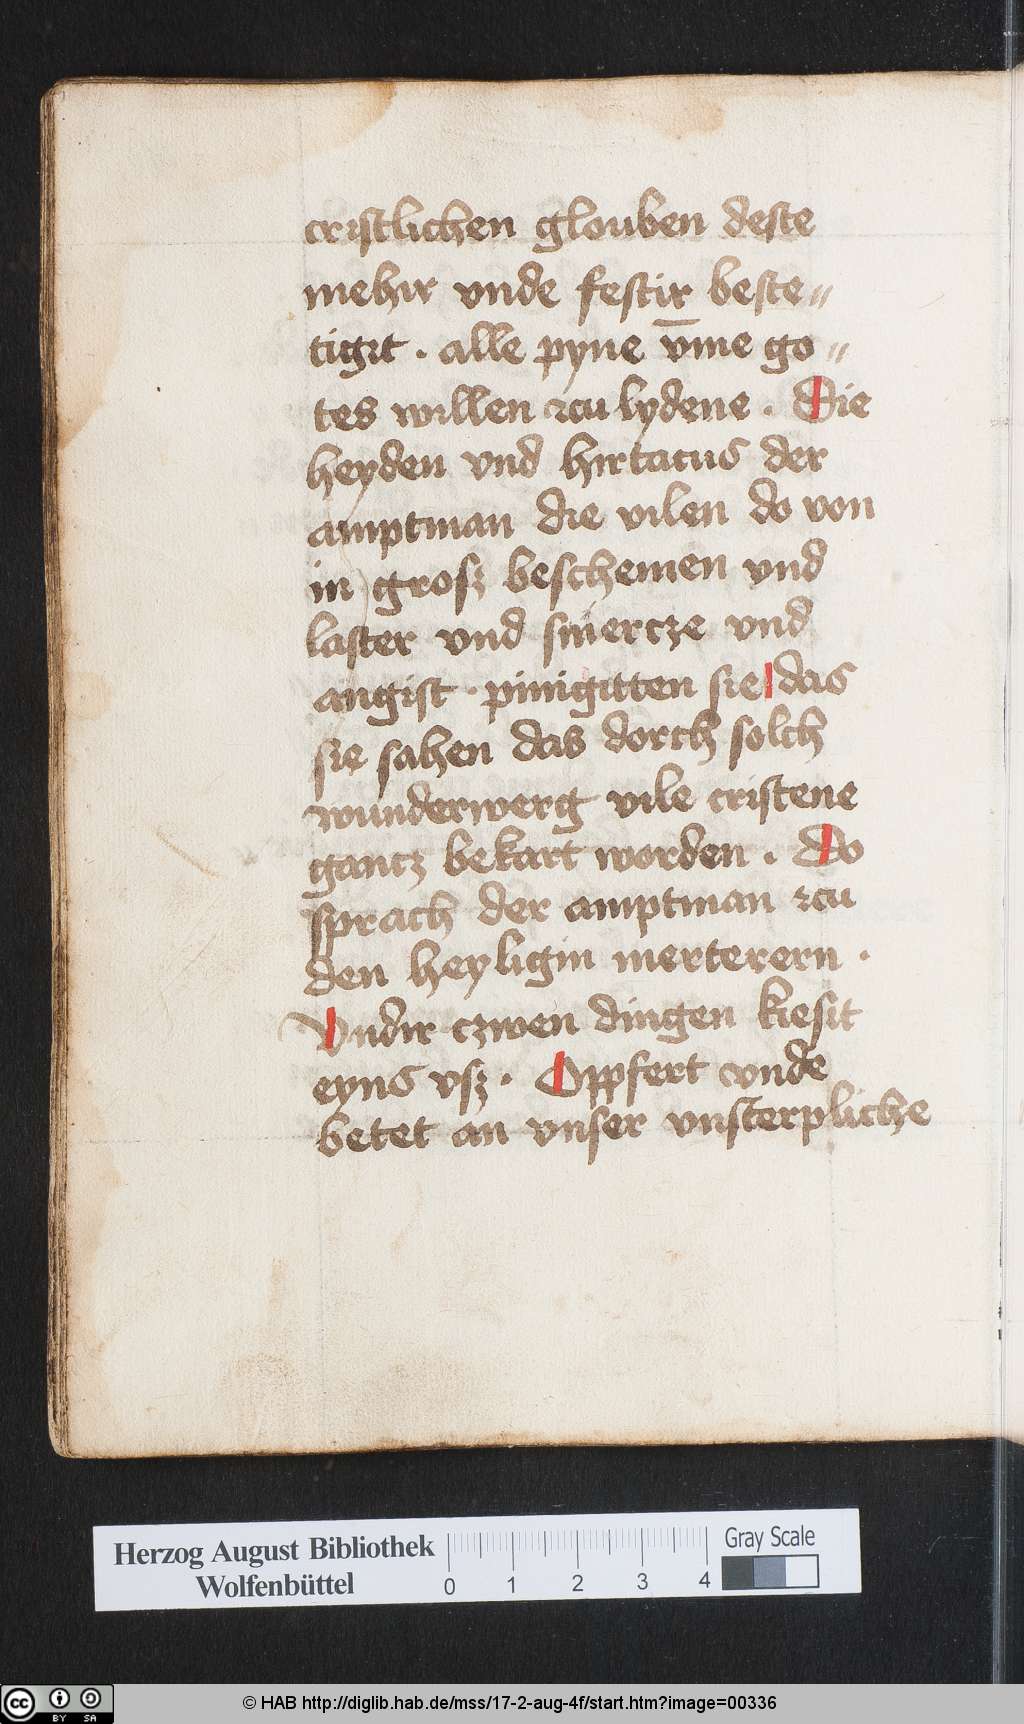 cristlichen glouben deste
mehir vnde festir beste〃
tigit . alle pyne v̄me go〃
tes willen zcu lydene . Die
heyden vnd hirtacus der
amptman die vilen do von
in grosz beschemen vnd
laster vnd smercze vnd
angist . pinigitten sie das
sie sahen das dorch solch
wunderwerg vile cristene
gantz bekart worden . Do
sprach der amptman zcu
den heyligin merterern .
Vndir czwen dingen kiesit
eyns vsz . Oppfert vnde
betet an vnser vnsterpliche
Herzog August Bibliothek
Wolfenbüttel
0 1 2 3 4
Gray Scale
cc BY SA
© HAB http://diglib.hab.de/mss/17-2-aug-4f/start.htm?image=00336